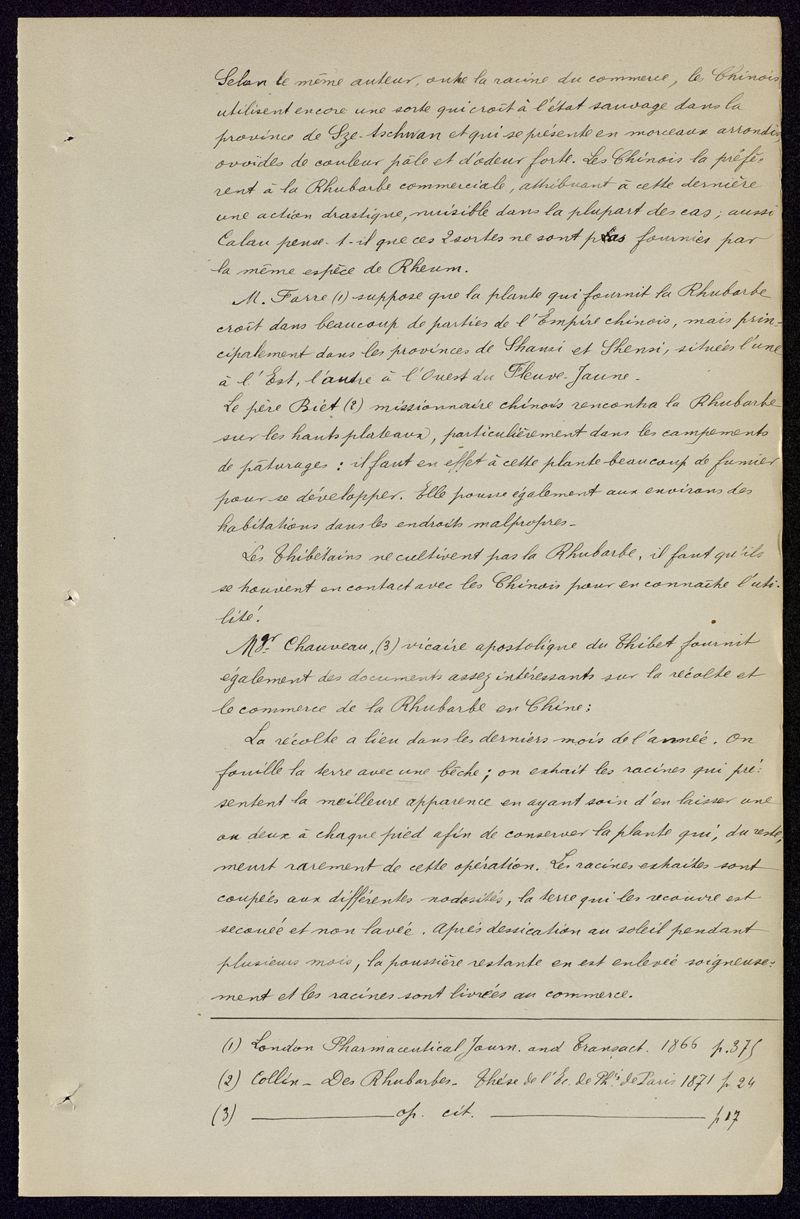 Selon le même auteur, outre la racine du commerce, les Chinois
utilisent encore une sorte qui croît à l'état sauvage dans la
province de Sze-tschwan et qui se présente en morceaux arrondis,
ovoïdes de couleur pâle et d'odeur forte. Les Chinois la préfè-
rent à la Rhubarbe commerciale, attribuant à cette dernière
une action drastique, nuisible dans la plupart des cas ; aussi
Calau pense-t-il que ces 2 sortes ne sont pas fournies par
la même espèce de Rheum.
M. Farre (1) suppose que la plante qui fournit la Rhubarbe
croît dans beaucoup de parties de l'Empire chinois, mais prin-
cipalement dans les provinces de Shansi et Shensi, situées l'une
à l'Est, l'autre à l'Ouest du Fleuve-Jaune -
Le père Biét (2) missionnaire chinois rencontra la Rhubarbe
sur les hauts plateaux, particulièrement dans les campements
de pâturages : il faut en effet à cette plante beaucoup de fumier
pour se développer. Elle pousse également aux environs des
habitations dans les endroits malpropres -
Les Thibétains ne cultivent pas la Rhubarbe, il faut qu'ils
se trouvent en contact avec les Chinois pour en connaître l'uti-
lité.
Mgr Chauveau, (3) vicaire apostolique du Thibet fournit
également des documents assez intéressants sur la récolte et
le commerce de la Rhubarbe en Chine :
La récolte a lieu dans les derniers mois de l'année. On
fouille la terre avec une bêche ; on extrait les racines qui pré-
sentent la meilleure apparence en ayant soin d'en laisser une
ou deux à chaque pied afin de conserver la plante qui, du reste,
meurt rarement de cette opération. Les racines extraites sont
coupées aux différentes nodosités, la terre qui les recouvre est
secouée et non lavée. Après dessication au soleil pendant
plusieurs mois, la poussière restante en est enlevée soigneuse-
ment et les racines sont livrées au commerce.
(1) London Pharmaceutical Journ. and Transact. 1866 p. 375
(2) Collin - Des Rhubarbes - Thèse de l'Ec. de Phie de Paris 1871 p 24
(3) op. cit. p 17